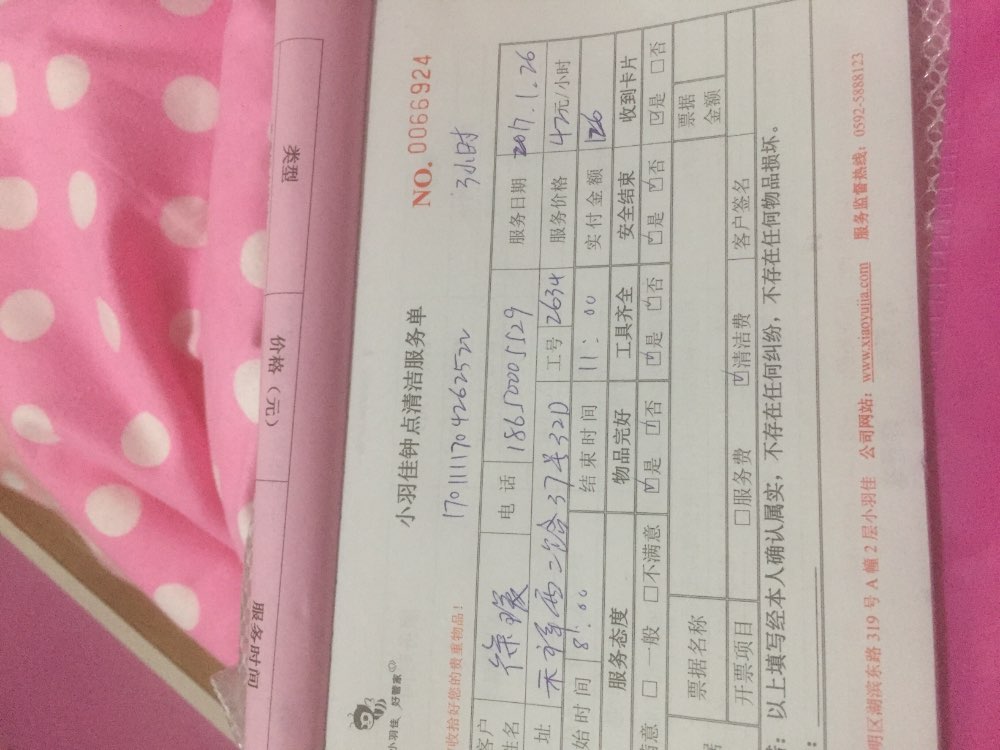 类型
价格（元）
服务时间
小羽佳 好管家
小羽佳钟点清洁服务单
NO. 0066924
收拾好您的贵重物品！
3小时
客户姓名 电 话 18650001529 服务日期 2017.1.26
址 37号32D 工号 2634 服务价格 42元/小时
始时间 8:00 结束时间 11:00 实付金额 126
服务态度 物品完好 工具齐全 安全结束 收到卡片
意 □ 一般 □不满意 ☑是 ☑否 ☑是 ☑否 ☑是 ☑否 ☑是 □否
票据名称 票据金额
开票项目 □服务费 ☑清洁费 客户签名
：以上填写经本人确认属实，不存在任何纠纷，不存在任何物品损坏。
明区湖滨东路 319 号 A 幢 2 层小羽佳 公司网站：www.xiaoyujia.com 服务监督热线：0592-5888123